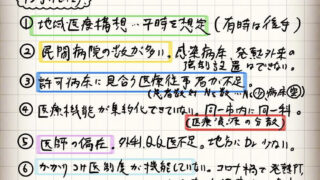 ① 地域医療構想…平時を想定 (有時は後手)
② 民間病院の数が多い。感染病床、発熱外来の
強制設置はできない。
③ 許可病床に見合う医療従事者が不足
④ 医療機能が集約化できていない。同一市内に同一科
(医療資源の分散)
⑤ 医師の偏在。外科、QQ医不足。地方にDr.少ない。
⑥ かかりつけ医制度が機能していない。コロナ禍で発熱門